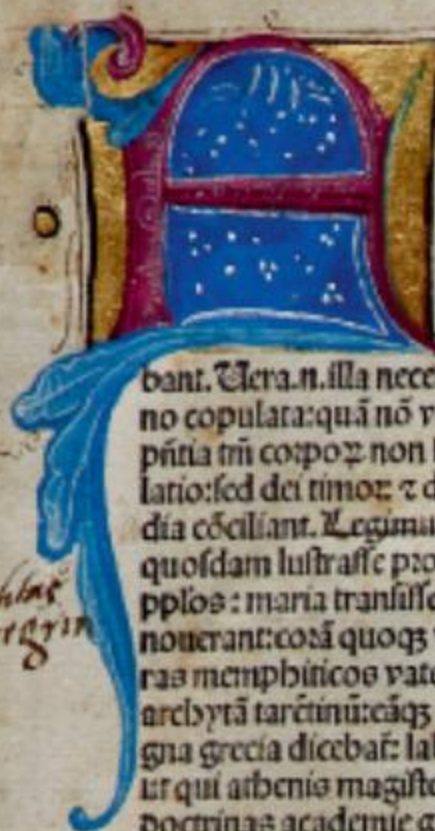 bant. Uera.n.illa nece
no copulata:quā nō v
pn̄tia tm̄ corpoꝝ non
latio:sed dei timor ⁊ d
dia cōciliant. Legimu
quosdam lustrasse pro
pplos: maria transisse
nouerant:corā quoqꝫ
ras memphiticos vate
archytā tarētinū:eāqꝫ
gna grecia dicebat̄: la
ut qui athenis magiste
doctrinas academie